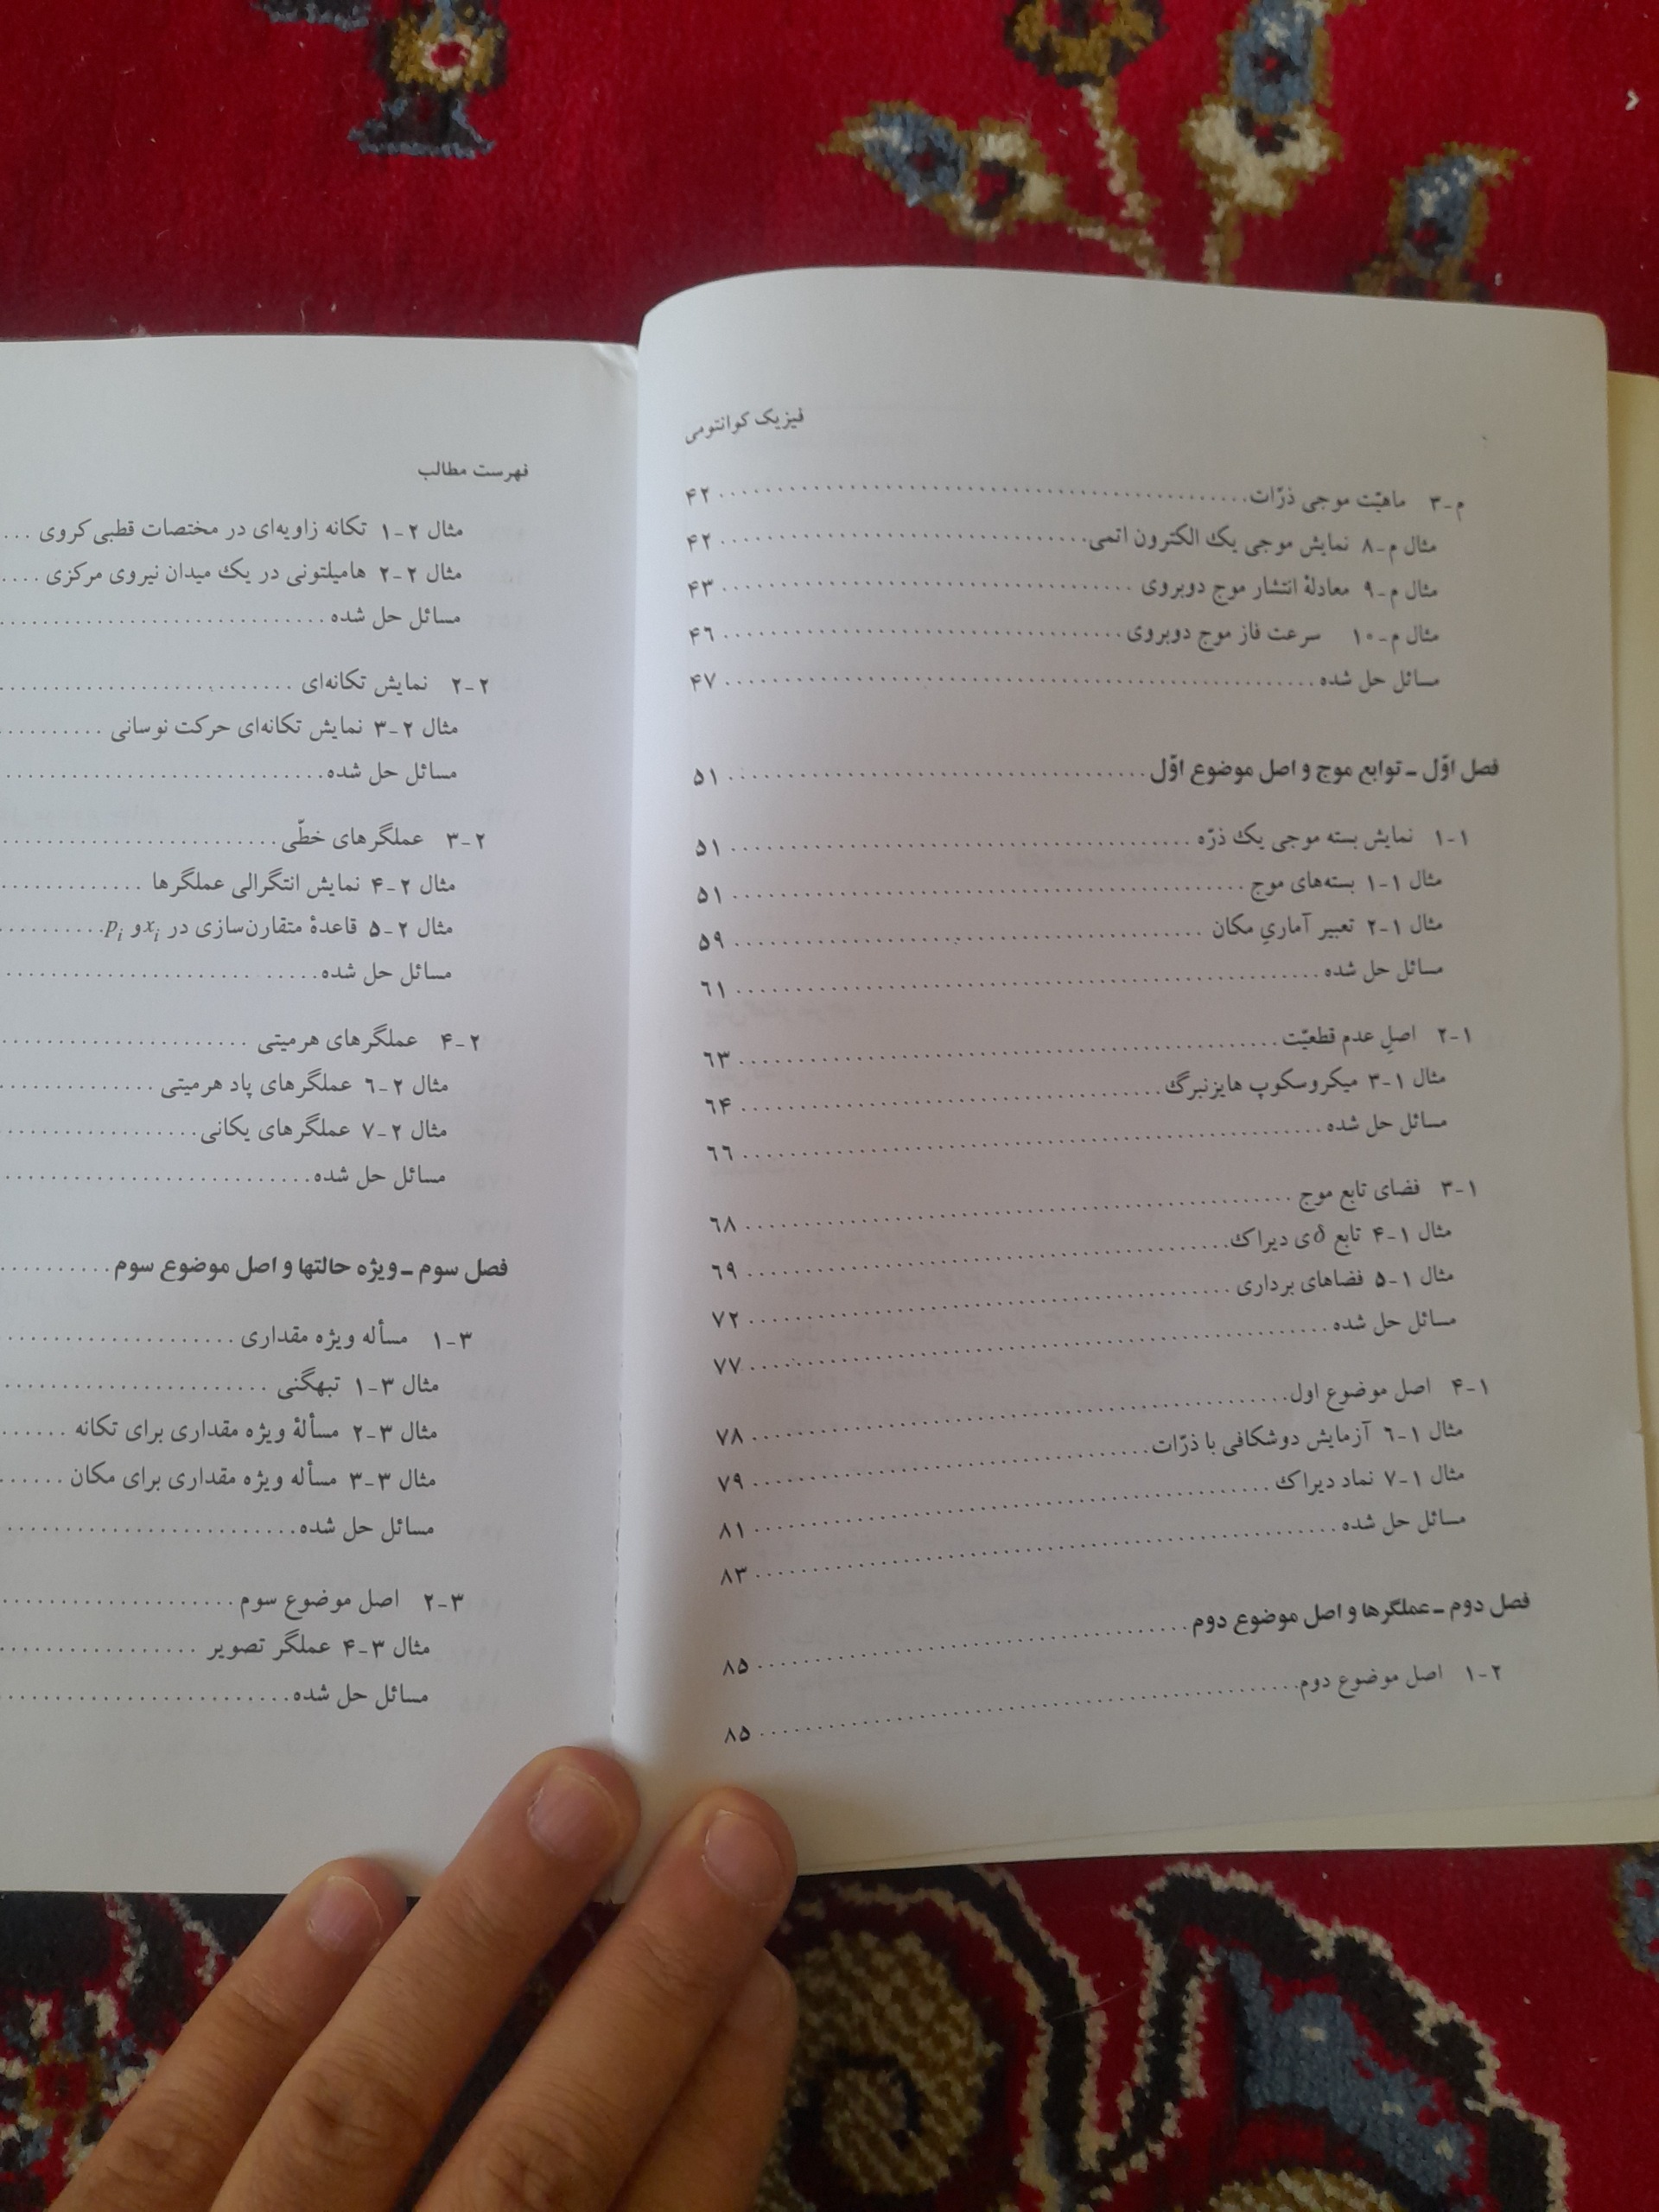 فیزیک کوانتومی
م-۳ ماهیّت موجی ذرّات ۴۲
مثال م-۸ نمایش موجی یک الکترون اتمی ۴۲
مثال م-۹ معادلهٔ انتشار موج دوبروی ۴۳
مثال م-۱۰ سرعت فاز موج دوبروی ۴۶
مسائل حل شده ۴۷
فصل اوّل ـ توابع موج و اصل موضوع اوّل ۵۱
۱-۱ نمایش بسته موجی یک ذرّه ۵۱
مثال ۱-۱ بسته‌های موج ۵۱
مثال ۱-۲ تعبیر آماریِ مکان ۵۹
مسائل حل شده ۶۱
۱-۲ اصلِ عدم قطعیّت ۶۳
مثال ۱-۳ میکروسکوپ هایزنبرگ ۶۴
مسائل حل شده ۶۶
۱-۳ فضای تابع موج ۶۸
مثال ۱-۴ تابع δی دیراک ۶۹
مثال ۱-۵ فضاهای برداری ۷۲
مسائل حل شده ۷۷
۱-۴ اصل موضوع اول ۷۸
مثال ۱-۶ آزمایش دوشکافی با ذرّات ۷۹
مثال ۱-۷ نماد دیراک ۸۱
مسائل حل شده ۸۳
فصل دوم ـ عملگرها و اصل موضوع دوم ۸۵
۲-۱ اصل موضوع دوم ۸۵
فهرست مطالب
مثال ۲-۱ تکانه زاویه‌ای در مختصات قطبی کروی
مثال ۲-۲ هامیلتونی در یک میدان نیروی مرکزی
مسائل حل شده
۲-۲ نمایش تکانه‌ای
مثال ۲-۳ نمایش تکانه‌ای حرکت نوسانی
مسائل حل شده
۲-۳ عملگرهای خطّی
مثال ۲-۴ نمایش انتگرالی عملگرها
مثال ۲-۵ قاعدهٔ متقارن‌سازی در xi و pi
مسائل حل شده
۲-۴ عملگرهای هرمیتی
مثال ۲-۶ عملگرهای پاد هرمیتی
مثال ۲-۷ عملگرهای یکانی
مسائل حل شده
فصل سوم ـ ویژه حالتها و اصل موضوع سوم
۳-۱ مسأله ویژه مقداری
مثال ۳-۱ تبهگنی
مثال ۳-۲ مسألهٔ ویژه مقداری برای تکانه
مثال ۳-۳ مسأله ویژه مقداری برای مکان
مسائل حل شده
۳-۲ اصل موضوع سوم
مثال ۳-۴ عملگر تصویر
مسائل حل شده